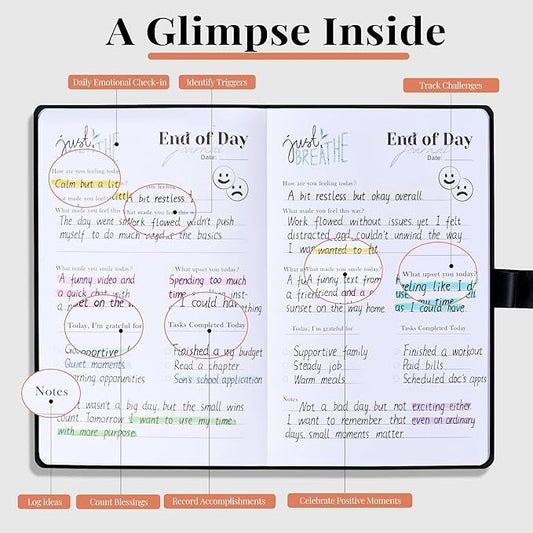 A Glimpse Inside
Daily Emotional Check-in
Identify Triggers
Track Challenges
just
BREATHE
End of Day
journal
Date:
How are you feeling today?
Calm but a lit
What made you feel
What made you feel this way?
The day went
myself to do much
the basics.
you feeling
A bit restless
What made you feel this
Work flowed
didn't push
What made you smile today?
A funny video and
a quick chat with
a
set on the wa
What upset you today?
Spending too much
time
inst-
I could hav
Today, I'm grateful for
Quiet moments
opportunities
Tasks Completed Today
Finished a budget
Read a chapter
Son's school application
Notes
wasn't a big day, but the small wins
count. Tomorrow I want to use my time
with more purpose.
just
BREATHE
End of Day
journal
Date:
How are you feeling today?
A bit restless but okay overall.
What made you feel this way?
Work flowed without issues, yet I felt
distracted and couldn't unwind the way
I wanted to.
What made you smile today?
A funny text from
a friend and a
sunset on the way home
What upset you today?
eeling like I d
use my time
as I could have.
Today, I'm grateful for
Supportive family
Steady job
Warm meals
Tasks Completed Today
Finished a workout
Paid bills
Scheduled doc's appts
Notes
Not a bad day, but not exciting either.
I want to remember that even on ordinary
days, small moments matter.
Log Ideas
Count Blessings
Record Accomplishments
Celebrate Positive Moments